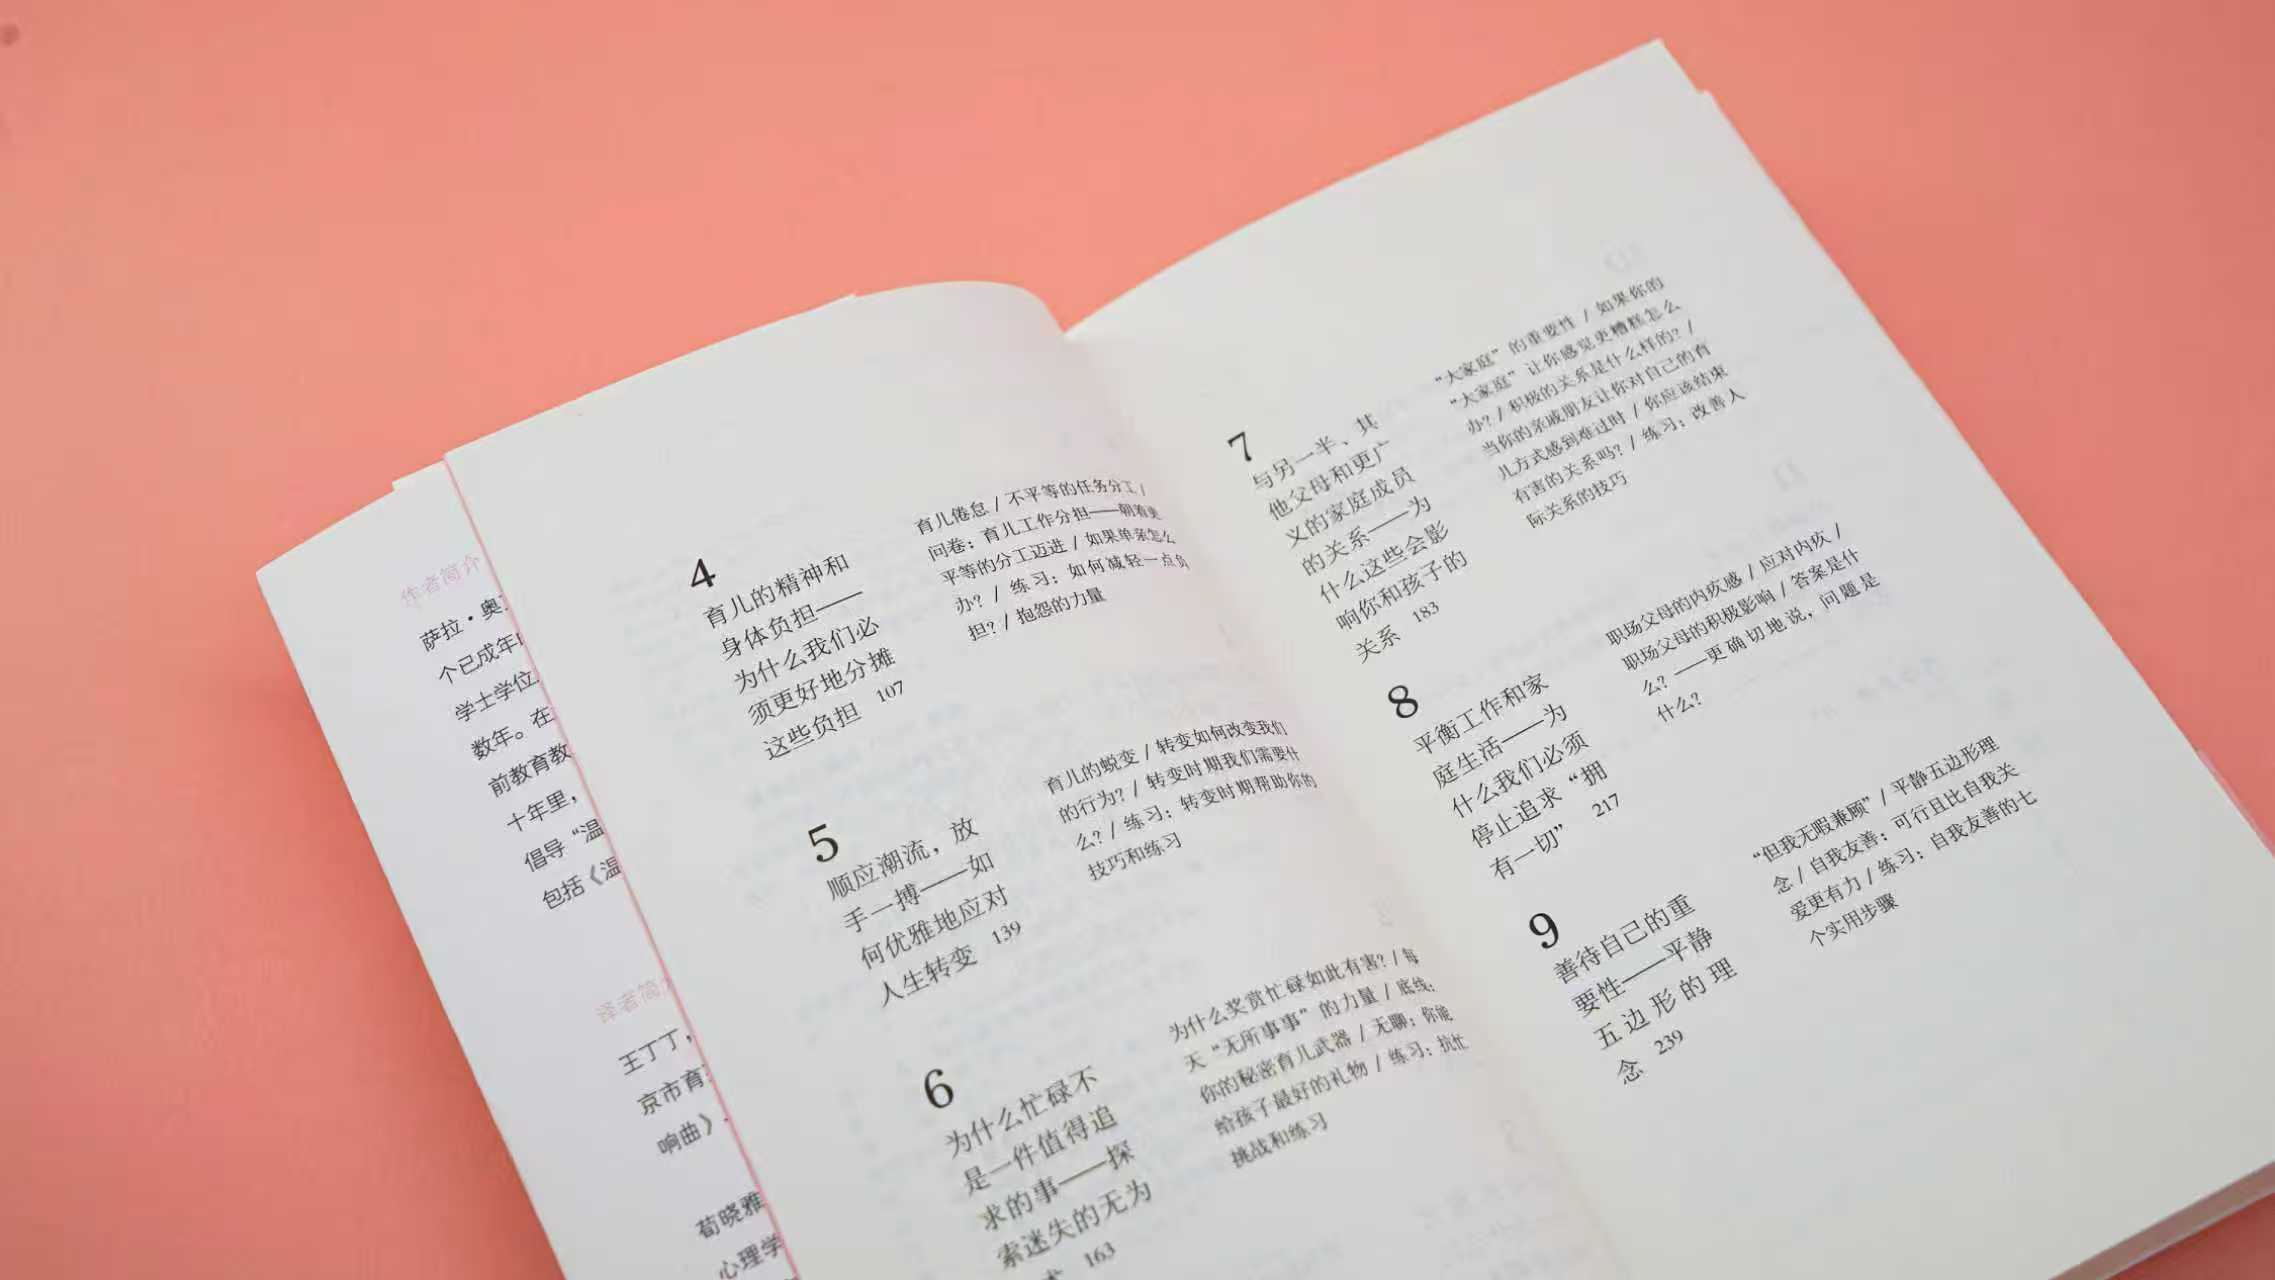 作者简介
萨拉·奥
个已成年
学士学位
数年。在
前教育教
十年里，
倡导“温
包括《温
译者简
王丁丁，
京市育
响曲》
荀晓雅
心理学
4
育儿的精神和
身体负担——
为什么我们必
须更好地分摊
这些负担 107
育儿倦怠 / 不平等的任务分工 /
问卷：育儿工作分担——朝着更
平等的分工迈进 / 如果单亲怎么
办？ / 练习：如何减轻一点负
担？/ 抱怨的力量
5
顺应潮流，放
手一搏——如
何优雅地应对
人生转变 139
育儿的蜕变 / 转变如何改变我们
的行为？/ 转变时期我们需要什
么？/ 练习：转变时期帮助你的
技巧和练习
6
为什么忙碌不
是一件值得追
求的事——探
索迷失的无为
163
为什么奖赏忙碌如此有害？/ 每
天“无所事事”的力量 / 底线：
你的秘密育儿武器 / 无聊：你能
给孩子最好的礼物 / 练习：抗忙
挑战和练习
7
与另一半、其
他父母和更广
义的家庭成员
的关系——为
什么这些会影
响你和孩子的
关系 183
“大家庭”的重要性 / 如果你的
“大家庭”让你感觉更糟糕怎么
办？/ 积极的关系是什么样的？/
当你的亲戚朋友让你对自己的育
儿方式感到难过时 / 你应该结束
有害的关系吗？/ 练习：改善人
际关系的技巧
8
平衡工作和家
庭生活——为
什么我们必须
停止追求“拥
有一切” 217
职场父母的内疚感 / 应对内疚 /
职场父母的积极影响 / 答案是什
么？——更确切地说，问题是
什么？
9
善待自己的重
要性——平静
五边形的理
念 239
“但我无暇兼顾” / 平静五边形理
念 / 自我友善：可行且比自我关
爱更有力 / 练习：自我友善的七
个实用步骤